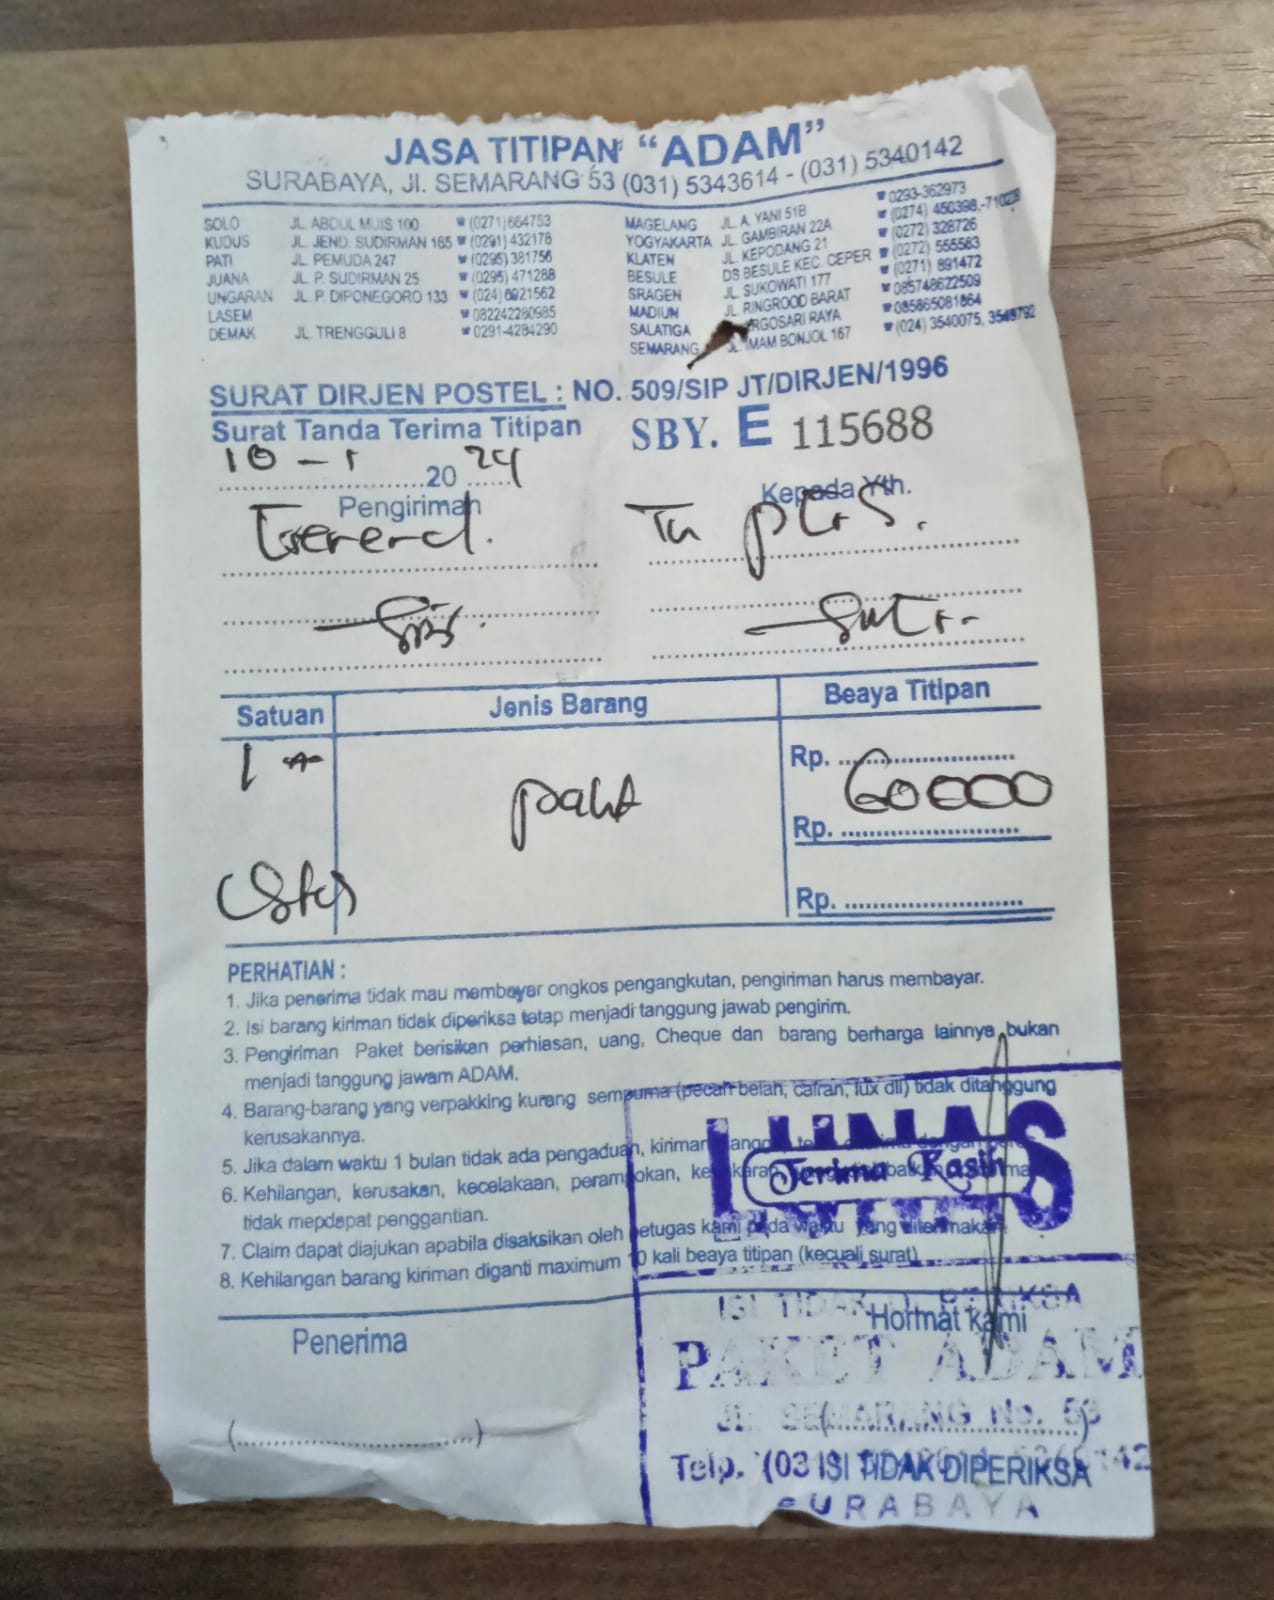 JASA TITIPAN "ADAM"
SURABAYA, Jl. SEMARANG 53 (031) 5343614 - (031) 5340142
SOLO JL. ABDUL MUIS 100 (0271) 664753
KUDUS JL. JEND. SUDIRMAN 165 (0291) 432178
PATI JL. PEMUDA 247 (0295) 381756
JUANA JL. P. SUDIRMAN 25 (0295) 471288
UNGARAN JL. P. DIPONEGORO 133 (024) 6921562
LASEM 082242280985
DEMAK JL. TRENGGULI 8 0291-4284290
MAGELANG JL. A. YANI 51B 0293-362973
YOGYAKARTA JL. GAMBIRAN 22A (0274) 450398,
KLATEN JL. KEPODANG 21 (0272) 328726
BESULE DS BESULE KEC. CEPER (0272) 555583
SRAGEN JL. SUKOWATI 177 (0271) 891472
MADIUN JL. RINGROOD BARAT 085748622509
SALATIGA RGOSARI RAYA 085865081864
SEMARANG JL. IMAM BONJOL 167 (024) 3540075, 3549792
SURAT DIRJEN POSTEL : NO. 509/SIP JT/DIRJEN/1996
Surat Tanda Terima Titipan SBY. E 115688
10 - 1 20 24
Pengiriman Kepada Yth.
Satuan Jenis Barang Beaya Titipan
1
Rp.
60000
Rp.
Rp.
PERHATIAN :
1. Jika penerima tidak mau membayar ongkos pengangkutan, pengiriman harus membayar.
2. Isi barang kiriman tidak diperiksa tetap menjadi tanggung jawab pengirim.
3. Pengiriman Paket berisikan perhiasan, uang, Cheque dan barang berharga lainnya, bukan
menjadi tanggung jawam ADAM.
4. Barang-barang yang verpakking kurang sempurna (pecah belah, cairan, lux dll) tidak ditanggung
kerusakannya.
5. Jika dalam waktu 1 bulan tidak ada pengaduan, kiriman
6. Kehilangan, kerusakan, kecelakaan, perampokan,
tidak mepdapat penggantian.
7. Claim dapat diajukan apabila disaksikan oleh petugas kami pada waktu yang
8. Kehilangan barang kiriman diganti maximum 10 kali beaya titipan (kecuali surat)
LUNAS
Terima Kasih
Penerima Hormat kami
ISI TIDAK DIPERIKSA
PAKET ADAM
JL. SEMARANG No. 53
Telp. (03
ISI TIDAK DIPERIKSA
SURABAYA